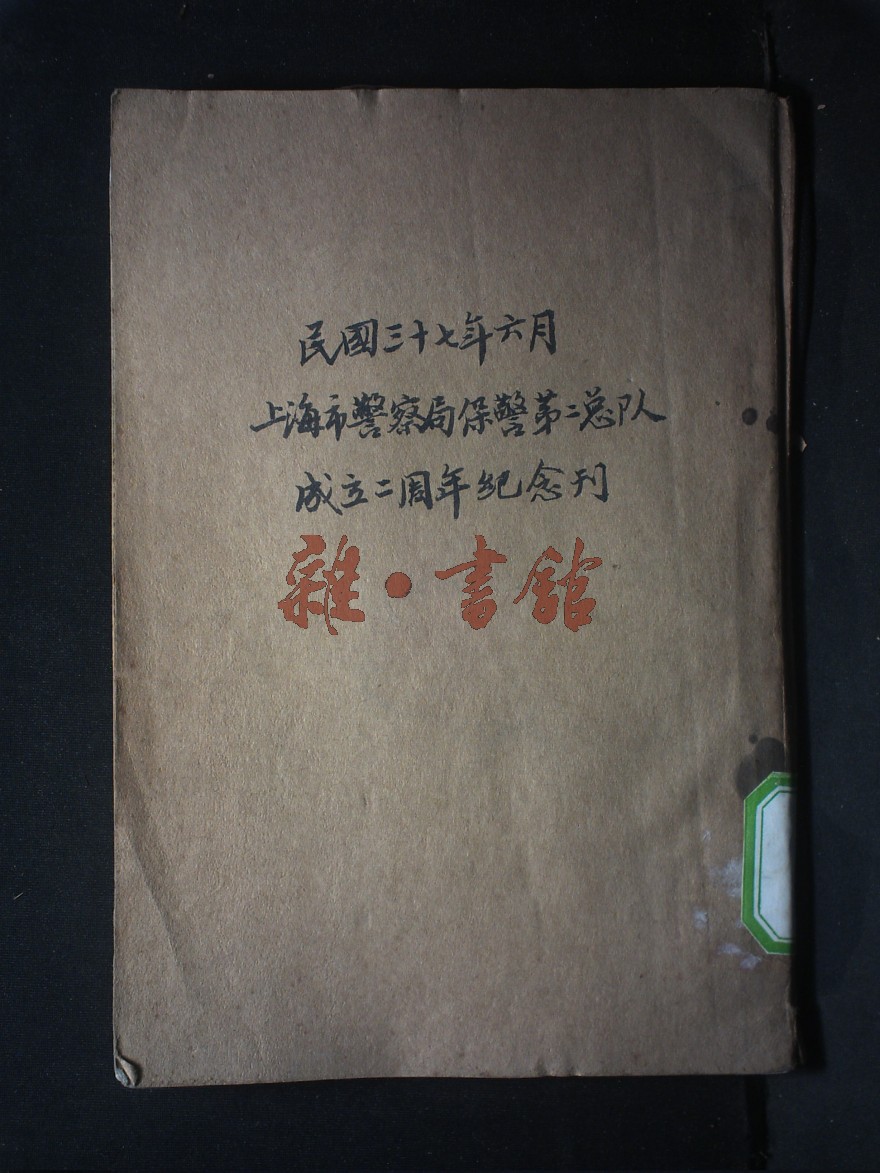 民國三十七年六月
上海市警察局保警第二总队
成立二周年纪念刊
雜·書館